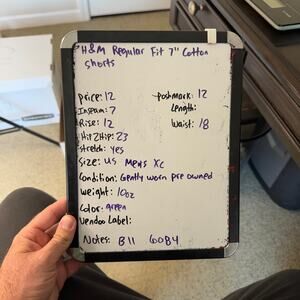 H&M Regular Fit 7" Cotton
shorts
price: 12
poshmark: 12
Inseam: 7
Length:
Rise: 12
Waist: 18
Hip2Hip: 23
stretch: yes
Size: US Men's XS
Condition: Gently worn pre owned
weight: 10oz
Color: green
Vendoo Label:
Notes: B11 60B4